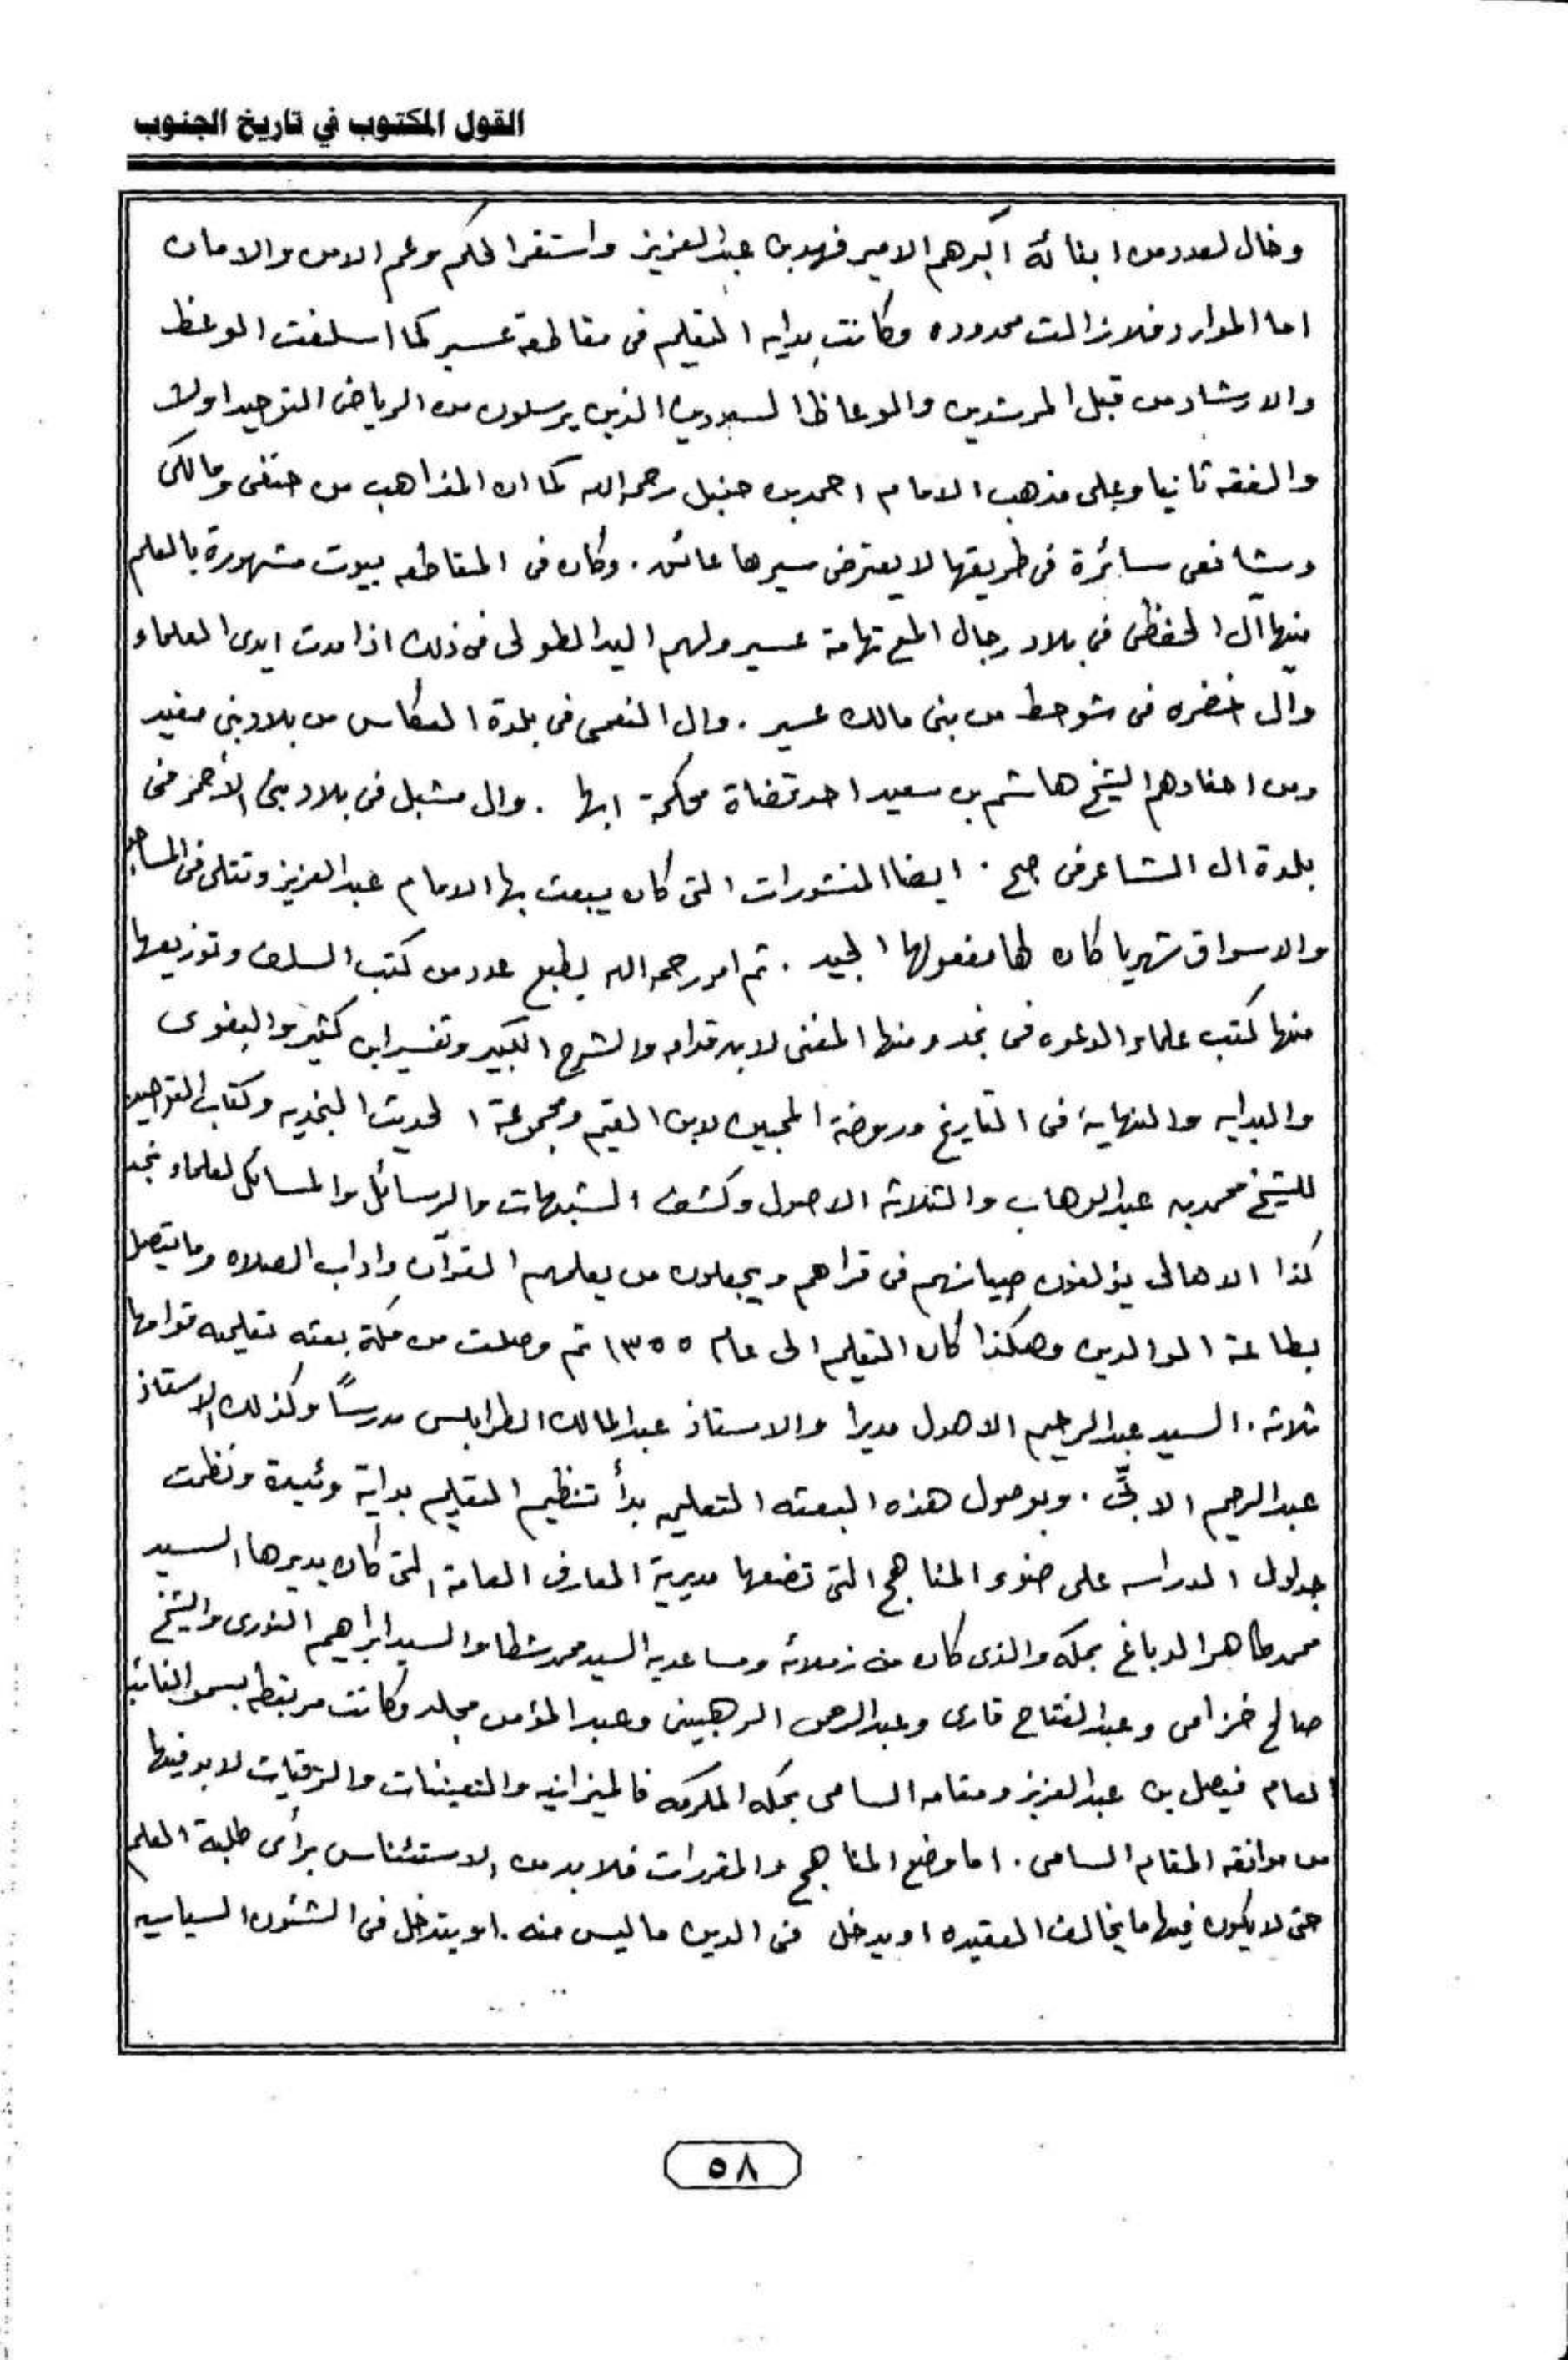 القول المكتوب في تاريخ الجنوب
وخال لعدد من ابنائه اكبرهم الامير فهد بن عبدالعزيز واستقر الحكم وعم الامن والامان
اما الموارد فلازالت محدوده وكانت بدايه التعليم فى مقاطعة عسير كما اسلفت الوعظ
والارشاد من قبل المرشدين والوعاظ السعوديين الذين يرسلون من الرياض التوحيد اولا
والفقه ثانيا وعلى مذهب الامام احمد بن حنبل رحمه الله كما ان المذاهب من حنفى ومالكى
وشافعى سائرة فى طريقها لا يعترض سيرها عائق . وكان فى المقاطعه بيوت مشهورة بالعلم
منها آل الحفظى فى بلاد رجال المع تهامة عسير ولهم اليد الطولى فى ذلك اذا مدت ايدى العلماء
وآل خضره فى شوحط من بنى مالك عسير . وال النعمى فى بلدة العكاس من بلاد بنى مفيد
ومن احفادهم الشيخ هاشم بن سعيد احد قضاة محكمة ابها . وال مشبل فى بلاد بنى الأحمر فى
بلدة ال الشاعر فى صبح . ايضا المنشورات التى كان يبعث بها الامام عبدالعزيز وتتلى فى المساجد
والاسواق شهريا كان لها مفعولها الجيد . ثم امر رحمه الله بطبع عدد من كتب السلف وتوزيعها
منها كتب علماء الدعوه فى نجد ومنها المغنى لابن قدامه والشرح الكبير وتفسير ابن كثير والبغوى
والبدايه والنهاية فى التاريخ وروضة المحبين لابن القيم ومجموعة الحديث النجديه وكتاب التوحيد
للشيخ محمد بن عبدالوهاب والثلاثه الاصول وكشف الشبهات والرسائل والمسائل لعلماء نجد
كذا الاهالى يؤلفون صبيانهم فى قراهم ويجعلون من يعلمهم القرآن واداب الصلاه وما يتصل
بطاعة الوالدين وهكذا كان التعليم الى عام ١٣٥٥ ثم وصلت من مكة بعثه تعليميه قوامها
ثلاثه . السيد عبدالرحيم الاهدل مديرا والاستاذ عبدالمالك الطرابلسى مدرسًا وكذلك الاستاذ
عبدالرحيم الابِّى . وبوصول هذه البعثه التعليميه بدأ تنظيم التعليم بداية وئيدة ونظمت
جداول الدراسه على ضوء المناهج التى تضعها مديرية المعارف العامة التى كان يديرها السيد
محمد طاهر الدباغ بمكه والذى كان من زملائه ومساعديه السيد محمد شطا والسيد ابراهيم النورى والشيخ
صالح خزامى وعبدالفتاح قارى وعبدالرحمن الرهبينى وعبدالمؤمن مجلد وكانت مرتبطه بسمو النائب
العام فيصل بن عبدالعزيز ومقامه السامى بمكه المكرمه فالميزانيه والتعيينات والترقيات لابد فيها
من موافقه المقام السامى . اما وضع المناهج والمقررات فلابد من الاستئناس برأى طلبة العلم
حتى لا يكون فيها ما يخالف العقيده او يدخل فى الدين ما ليس منه . او يتدخل فى الشئون السياسيه
٥٨